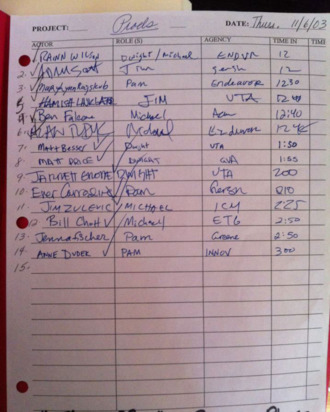 PROJECT: Prods DATE: Thurs. 11/6/03
ACTOR ROLE(S) AGENCY TIME IN TIME
RAINN WILSON Dwight/Michael ENDVR 12
2. ADAM SCOTT Jim Gersh 12
3. Mary Lynn Rajskub Pam Endeavor 1230
5. HAMISH LINKLATER JIM UTA
4. Ben Falcone Michael 12:40
6. ALAN Michael Endeavor 12:45
7. Matt Besser Dwight UTA 1:50
8. MATT PRICE DWIGHT 1:55
9. JARRETT GRODE DWIGHT UTA 200
10. Ever Carradine Pam Gersh 210
11. JIM ZULEVIC MICHAEL ICM 225
12. Bill Chott Michael ETG 2:50
13. Jenna Fischer Pam Greene 2:50
14. ANNE DUDEK PAM INNOV 300
15.